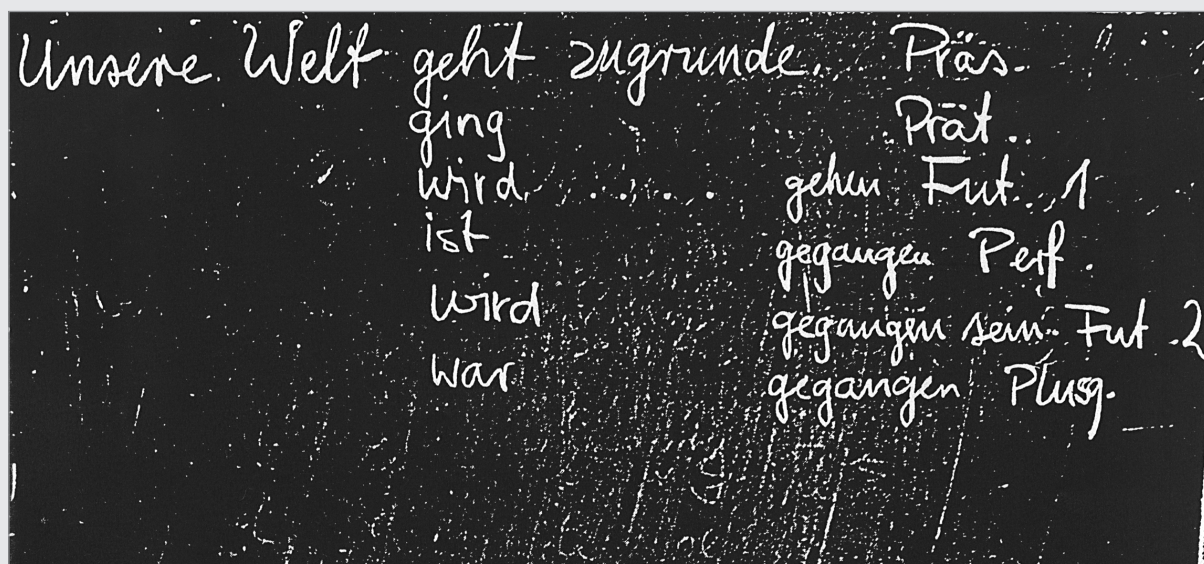 Unsere Welt geht zugrunde. Präs.
ging Prät.
wird ...... gehen Fut. 1
ist gegangen Perf.
wird gegangen sein Fut. 2
war gegangen Plusq.